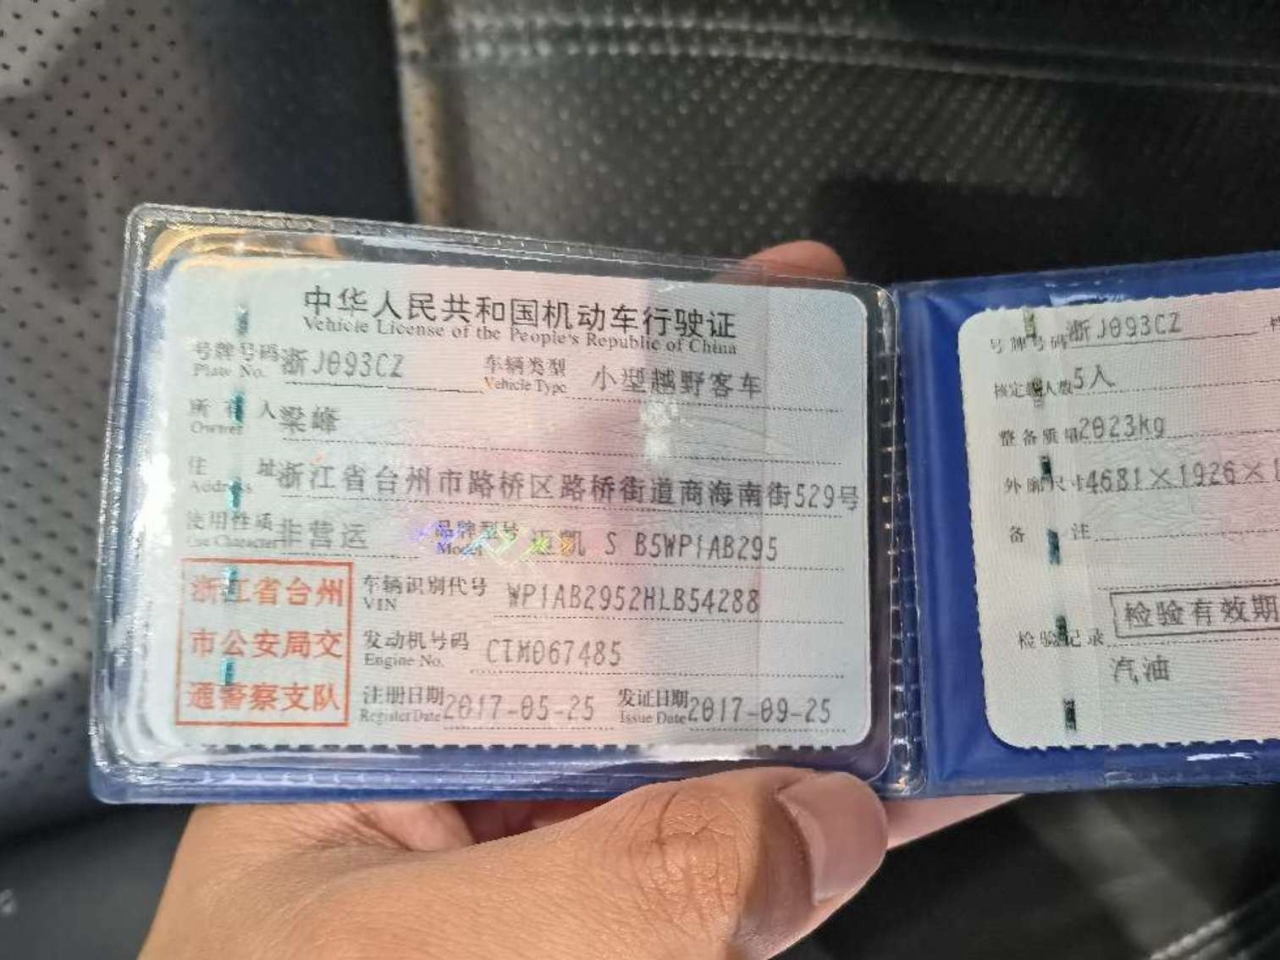 中华人民共和国机动车行驶证
Vehicle License of the People's Republic of China
号牌号码 浙J093CZ 车辆类型 小型越野客车
Plate No. Vehicle Type
所有人 梁峰
Owner
住址 浙江省台州市路桥区路桥街道商海南街529号
Address
使用性质 非营运 品牌型号 迈凯 S B5WP1AB295
Use Character Model
浙江省台州
市公安局交
通警察支队
车辆识别代号 WP1AB2952HLB54288
VIN
发动机号码 CTM067485
Engine No.
注册日期 2017-05-25 发证日期 2017-09-25
Register Date Issue Date
号牌号码 浙J093CZ
核定载人数 5人
整备质量 2023kg
外廓尺寸 4681×1926×
备注
检验有效期
检验记录
汽油